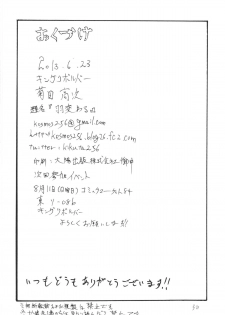 おくづけ
2013.6.23
キングリボルバー
菊田尚次
kosmos256@gmail.com
http://kosmos256.blog26.fc2.com
twitter: kikuta256
印刷: 大陽出版株式会社 御中
次回参加イベント
8月11日(日曜日) コミックマーケット84
東 リ-08b
キングリボルバー
よろしくお願いします!!
いつもどうもありがとうございます!!